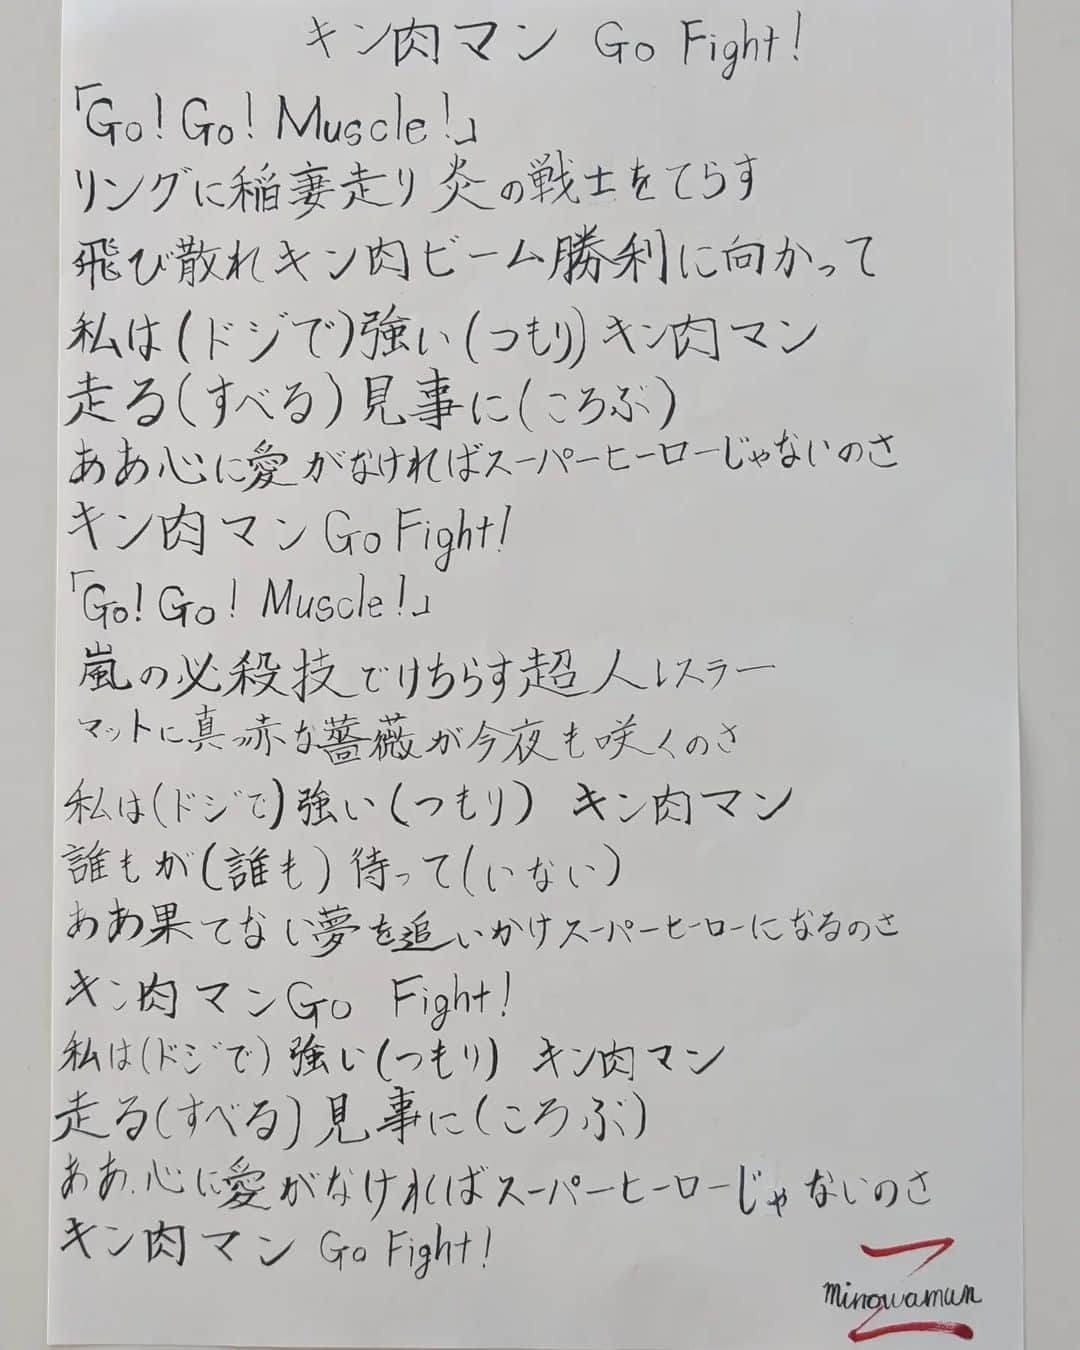 キン肉マン Go Fight!
「Go! Go! Muscle!」
リングに稲妻走り 炎の戦士をてらす
飛び散れキン肉ビーム勝利に向かって
私は(ドジで)強い(つもり)キン肉マン
走る(すべる)見事に(ころぶ)
ああ心に愛がなければスーパーヒーローじゃないのさ
キン肉マン Go Fight!
「Go! Go! Muscle!」
嵐の必殺技でけちらす超人レスラー
マットに真っ赤な薔薇が今夜も咲くのさ
私は(ドジで)強い(つもり) キン肉マン
誰もが(誰も)待って(いない)
ああ果てない夢を追いかけスーパーヒーローになるのさ
キン肉マン Go Fight!
私は(ドジで)強い(つもり) キン肉マン
走る(すべる)見事に(ころぶ)
ああ、心に愛がなければスーパーヒーローじゃないのさ
キン肉マン Go Fight!
minowaman
Z